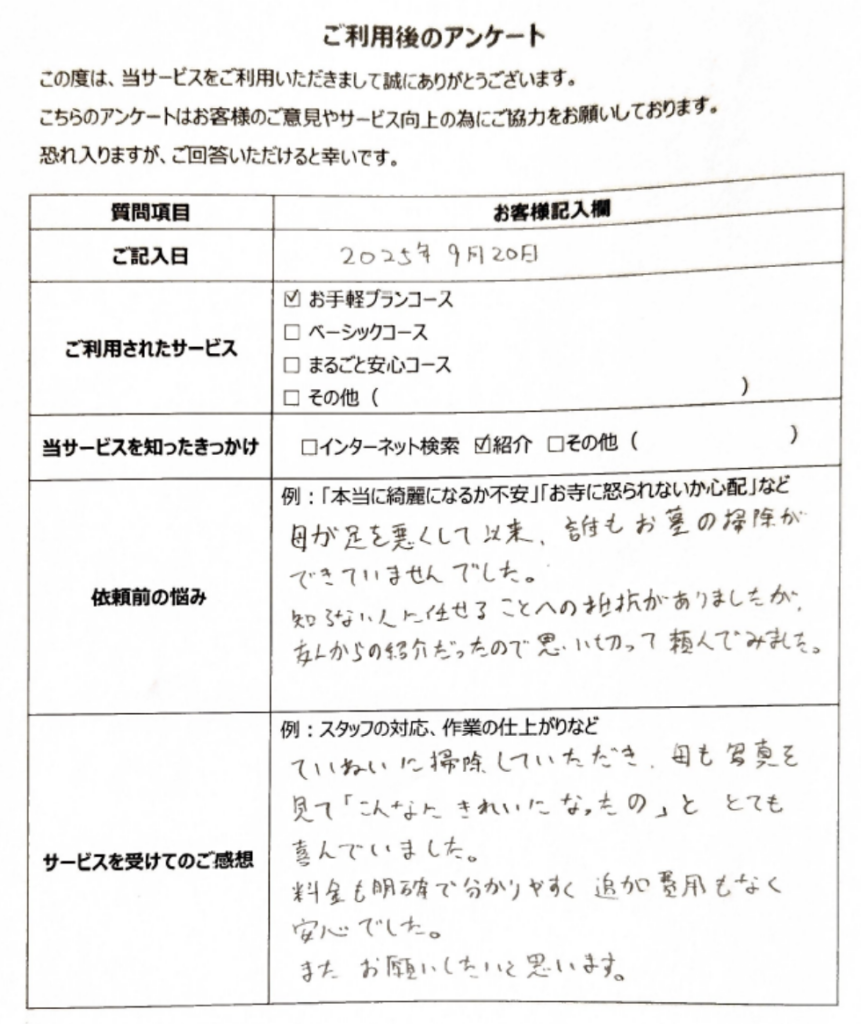 ご利用後のアンケート
この度は、当サービスをご利用いただきまして誠にありがとうございます。
こちらのアンケートはお客様のご意見やサービス向上の為にご協力をお願いしております。
恐れ入りますが、ご回答いただけると幸いです。
質問項目 お客様記入欄
ご記入日 2025年9月20日
ご利用されたサービス
☑ お手軽プランコース
□ ベーシックコース
□ まるごと安心コース
□ その他（ ）
当サービスを知ったきっかけ □インターネット検索 ☑紹介 □その他（ ）
依頼前の悩み
例：「本当に綺麗になるか不安」「お寺に怒られないか心配」など
母が足を悪くして以来、誰もお墓の掃除が
できていませんでした。
知らない人に任せることへの抵抗がありましたが、
友人からの紹介だったので思い切って頼んでみました。
サービスを受けてのご感想
例：スタッフの対応、作業の仕上がりなど
ていねいに掃除していただき、母も写真を
見て「こんなにきれいになったの」ととても
喜んでいました。
料金も明確で分かりやすく追加費用もなく
安心でした。
またお願いしたいと思います。